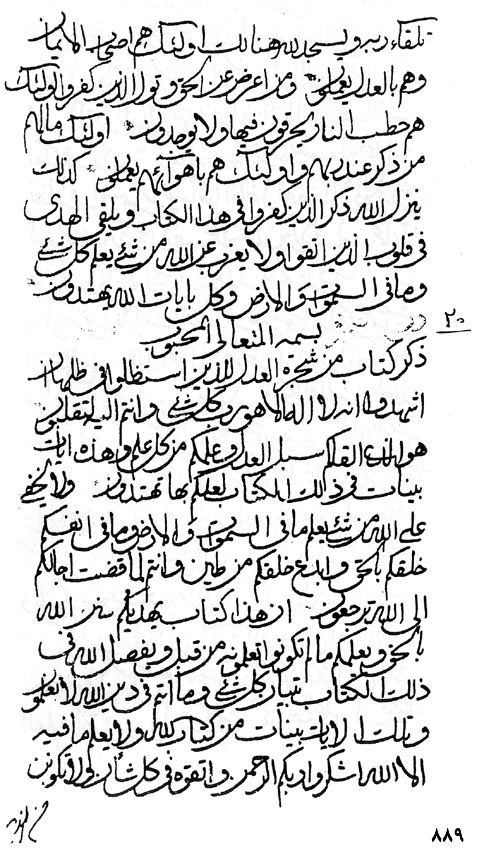 تلقاء ربه ويسجد لله هنالك اولئك هم اصحاب الايمان
وهم بالعدل يعملون ومن اعرض عن الحق وتولى الذين كفروا اولئك
هم حطب النار يحرقون فيها ولا يوجدون اولئك ما لهم
من ذكر عند ربهم واولئك هم باهوائهم يعملون كذلك
ينزل الله ذكر الذين كفروا في هذا الكتاب ويلقي الهدى
في قلوب الذين اتقوا ولا يعزب عن الله من شئ يعلم كل شئ
وما في السموات والارض وكل بايات الله يهتدون
٢٠
بسمه المتعالي المحبوب
ذكر كتاب من شجرة العدل للذين استظلوا في ظلها ان
اشهدوا انه لا اله الا هو رب كل شئ وانتم اليه لتقلبون
هو الذي القاكم سبل العدل وعلمكم من كل علم وهذه ايات
بينات في ذلك الكتاب لعلكم بها تهتدون ولا يخفى
على الله من شئ يعلم ما في السموات والارض وما في انفسكم
خلقكم بالحق وابدع خلقكم من طين وانتم لما قضت اجالكم
الى الله ترجعون ان هذا كتاب يهديكم سنن الله
بالحق ويعلمكم ما لم تكونوا تعلمونه من قبل ويفصل الله في
ذلك الكتاب تبيان كل شئ وما انتم في دين الله لا تعلمون
وتلك الايات بينات من كتاب الله ولا يعلم ما فيه
الا الله اشكروا ربكم الرحمن واتقوه في كل شأن ولا تكونن
٨٨٩